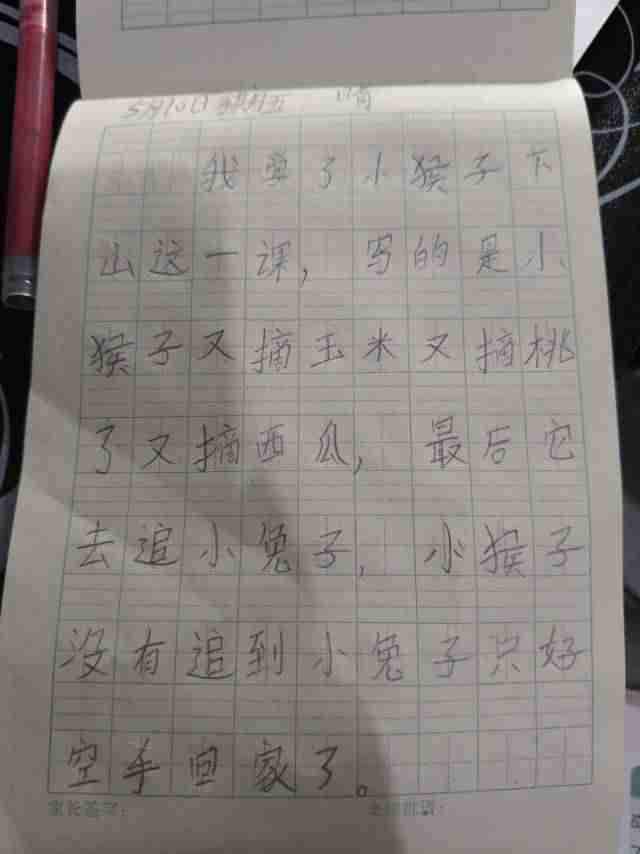 5月10日 星期五 晴
我学了小猴子下
山这一课,写的是小
猴子又摘玉米又摘桃
了又摘西瓜,最后它
去追小兔子,小猴子
没有追到小兔子只好
空手回家了。
家长签字: